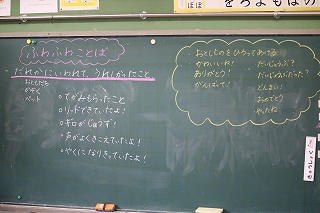 ふわふわことば
だれかにいわれて、うれしかったこと
おともだち
かぞく
ペット
○てがみもらったこと
○リードできていたよ!
○ギロがじょうず!
○声がよくきこえていたよ!
○やくになりきっていたよ!
おとしものをひろってあげる
かわいいね!
ありがとう!
がんばって!
だいじょうぶ?
だいじょうぶだった?
どんまい!
おめでとう
やったね